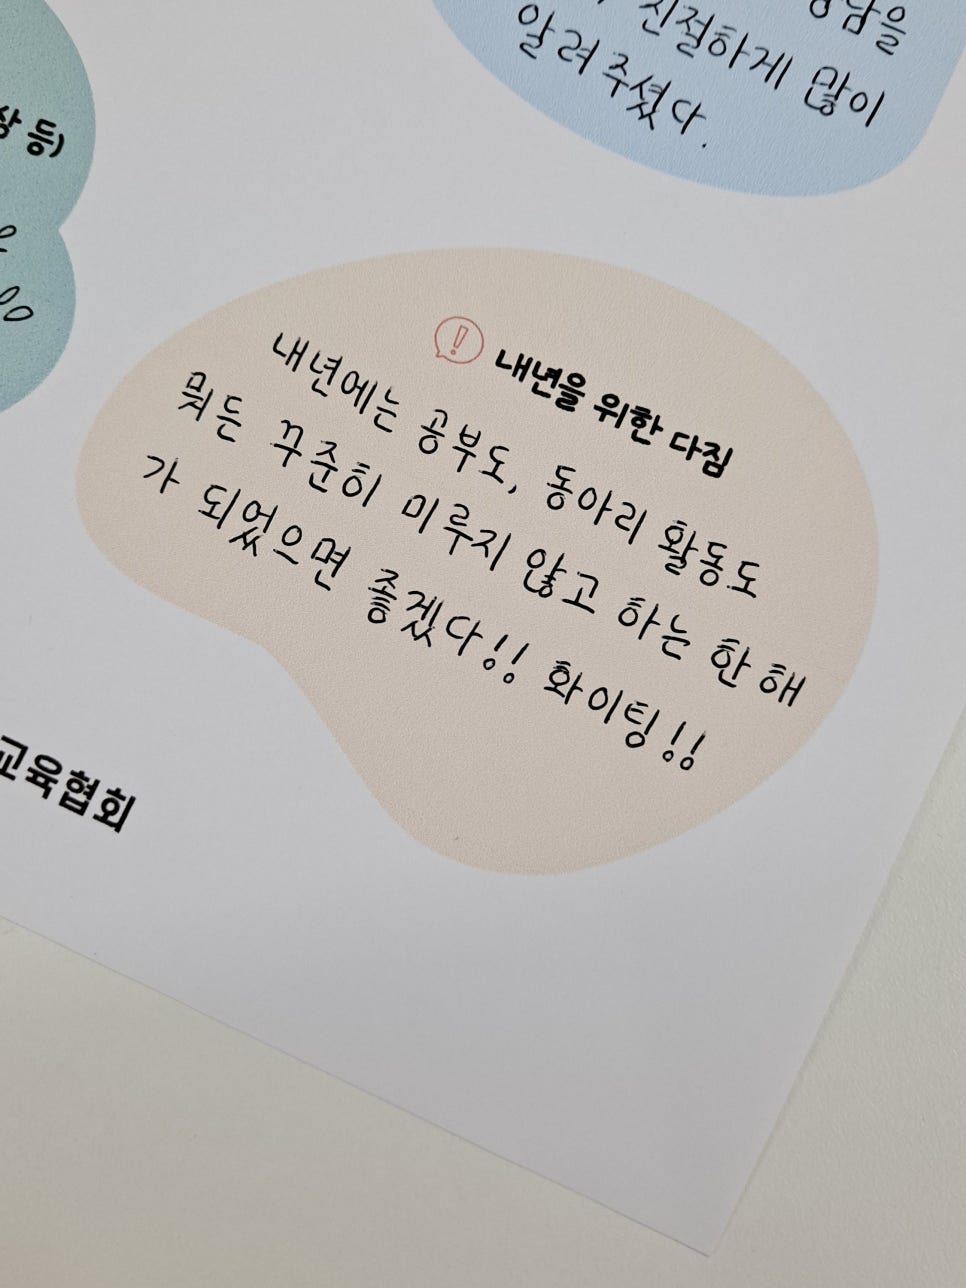 친절하게 많이
알려 주셨다.
등)
내년을 위한 다짐
내년에는 공부도, 동아리 활동도
뭐든 꾸준히 미루지 않고 하는 한 해
가 되었으면 좋겠다!! 화이팅!!
교육협회